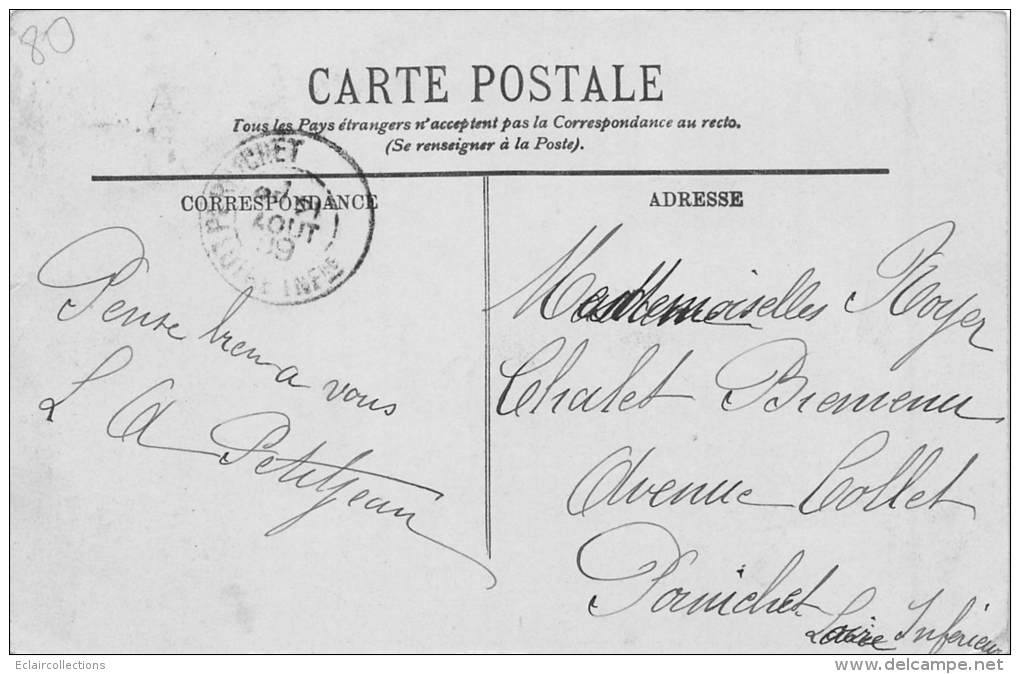 80
CARTE POSTALE
Tous les Pays étrangers n'acceptent pas la Correspondance au recto.
(Se renseigner à la Poste).
CORRESPONDANCE
ADRESSE
AOUT
09
LOIRE INFRE
Pense bien a vous
L A Petitjean
Mesdemoiselles Royer
Chalet Bienvenu
Avenue Collet
Pornichet
Loire Inférieure
Eclaircollections
www.delcampe.net